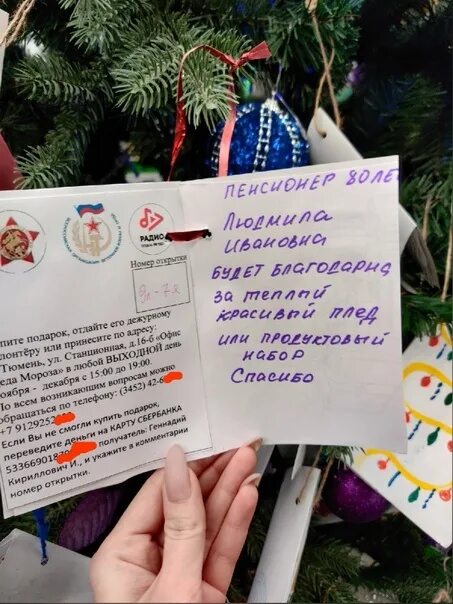 РАДИО
Номер открытки
Эл-72
пите подарок, отдайте его дежурному
лонтёру или принесите по адресу:
Тюмень, ул. Станционная, д.16-б «Офис
еда Мороза» в любой ВЫХОДНОЙ день
оября - декабря с 15:00 до 19:00.
По всем возникающим вопросам можно
обращаться по телефону: (3452) 42-6
+7 9129252
Если Вы не смогли купить подарок,
переведите деньги на КАРТУ СБЕРБАНКА
получатель: Геннадий
Кириллович И., и укажите в комментарии
номер открытки.
ПЕНСИОНЕР 80ЛЕ
ЛЮДМИЛА
ИВАНОВНА
БУДЕТ БЛАГОДАРНА
ЗА ТЕПЛЫЙ
КРАСИВЫЙ ПЛЕД
ИЛИ ПРОДУКТОВЫЙ
НАБОР
СПАСИБО